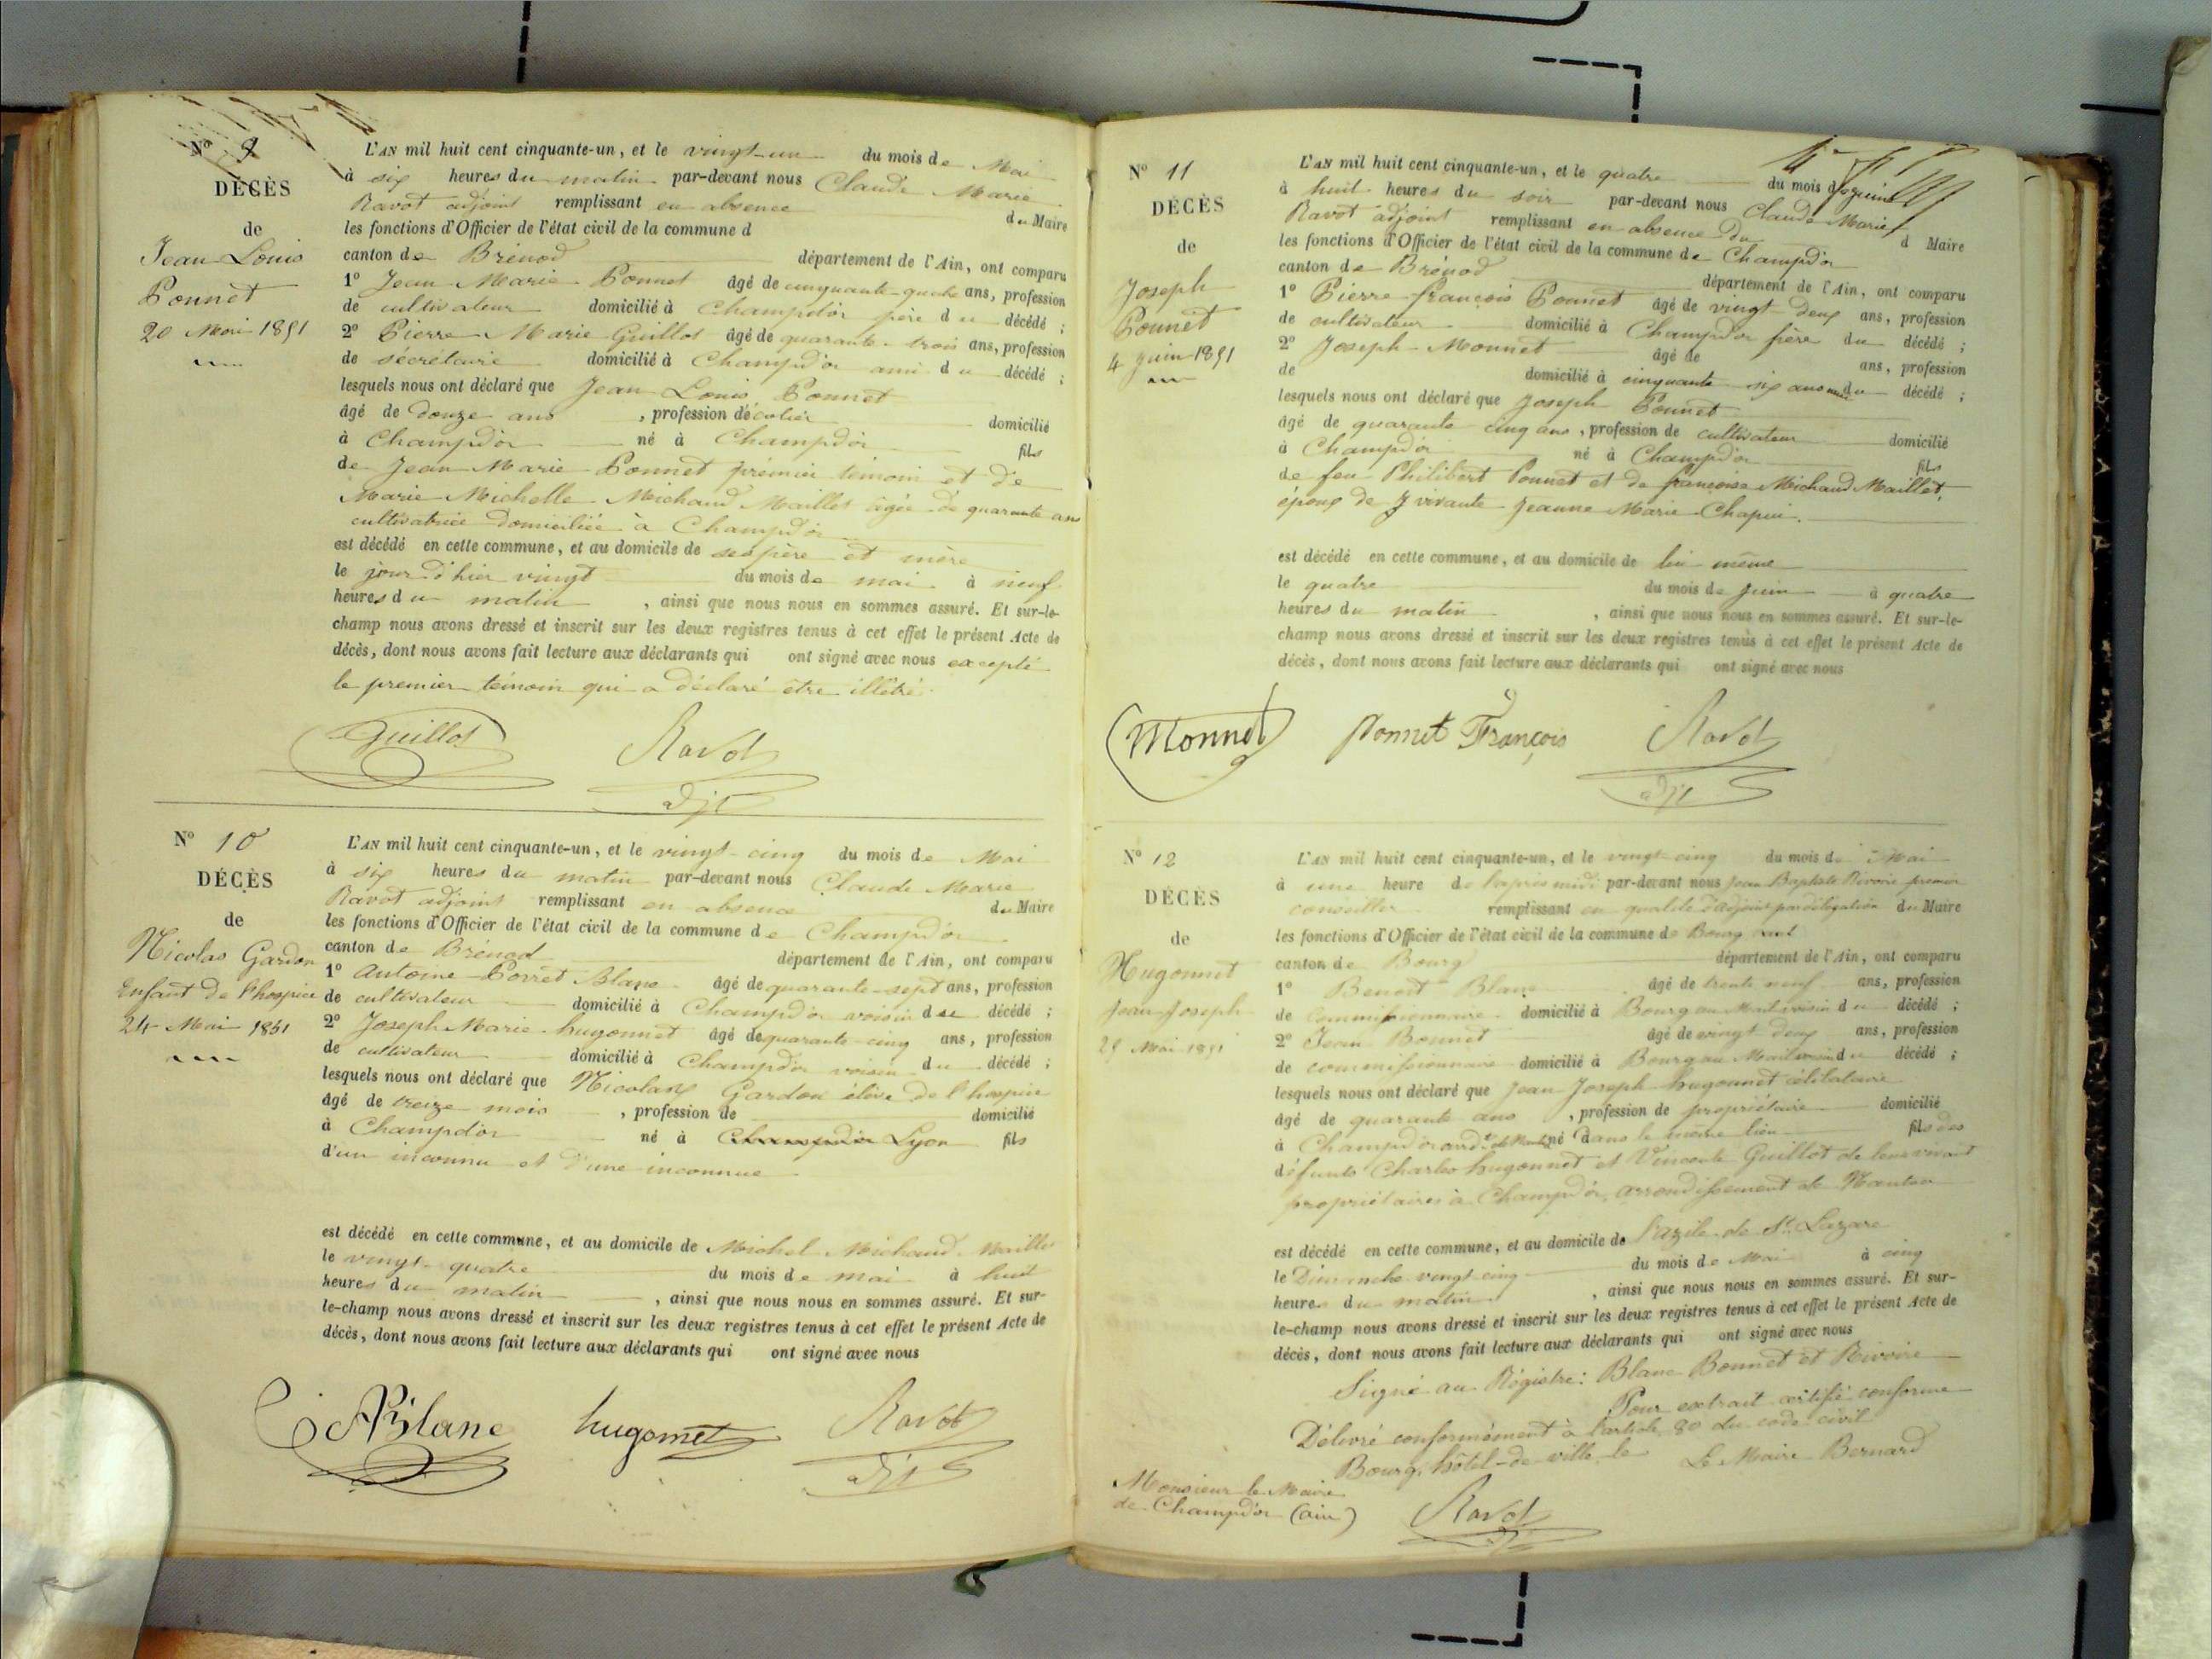 Nº 9
DÉCÈS
de
Jean Louis
Ponnet
20 Mai 1851
L'AN mil huit cent cinquante-un, et le vingt-un du mois de Mai
à six heures du matin par-devant nous Claude Marie
Ravot adjoint remplissant en absence du Maire
les fonctions d'Officier de l'état civil de la commune d
canton de Brénod département de l'Ain, ont comparu
1º Jean Marie Ponnet âgé de cinquante-quatre ans, profession
de cultivateur domicilié à Champdor père du décédé ;
2º Pierre Marie Guillot âgé de quarante-trois ans, profession
de sécrétaire domicilié à Champd'or ami du décédé ;
lesquels nous ont déclaré que Jean Louis Ponnet
âgé de douze ans , profession d'écolier domicilié
à Champd'or né à Champd'or fils
de Jean Marie Ponnet prémier témoin et de
Marie Michelle Michaud Maillet âgée de quarante ans
cultivatrice domiciliée à Champd'or
est décédé en cette commune, et au domicile de ses père et mère
le jour d'hier vingt du mois de mai à neuf
heures du matin , ainsi que nous nous en sommes assuré. Et sur-le-
champ nous avons dressé et inscrit sur les deux registres tenus à cet effet le présent Acte de
décès, dont nous avons fait lecture aux déclarants qui ont signé avec nous excepté
le premier témoin qui a déclaré être illétré.
Guillot Ravot
adjt
Nº 10
DÉCÈS
de
Nicolas Gardon
Enfant de l'hospice
24 Mai 1851
L'AN mil huit cent cinquante-un, et le vingt-cinq du mois de Mai
à six heures du matin par-devant nous Claude Marie
Ravot adjoint remplissant en absence du Maire
les fonctions d'Officier de l'état civil de la commune de Champd'or
canton de Brénod département de l'Ain, ont comparu
1º Antoine Porret Blanc âgé de quarante-sept ans, profession
de cultivateur domicilié à Champd'or voisin du décédé ;
2º Joseph Marie hugonnet âgé de quarante-cinq ans, profession
de cultivateur domicilié à Champd'or voisin du décédé ;
lesquels nous ont déclaré que Nicolas Gardon élève de l'hospice
âgé de treize mois , profession de domicilié
à Champdor né à Champdor Lyon fils
d'un inconnu et d'une inconnue
est décédé en cette commune, et au domicile de Michel Michaud Maillet
le vingt-quatre du mois de mai à huit
heures du matin , ainsi que nous nous en sommes assuré. Et sur-
le-champ nous avons dressé et inscrit sur les deux registres tenus à cet effet le présent Acte de
décès, dont nous avons fait lecture aux déclarants qui ont signé avec nous
Blanc hugonnet Ravot
adjt
Nº 11
DÉCÈS
de
Joseph
Ponnet
4 Juin 1851
L'AN mil huit cent cinquante-un, et le quatre du mois de juin
à huit heures du soir par-devant nous Claude Marie
Ravot adjoint remplissant en absence du d Maire
les fonctions d'Officier de l'état civil de la commune de Champd'or
canton de Brénod département de l'Ain, ont comparu
1º Pierre françois Ponnet âgé de vingt deux ans, profession
de cultivateur domicilié à Champd'or frère du décédé ;
2º Joseph Monnet âgé de ans, profession
de domicilié à cinquante six ans ami du décédé ;
lesquels nous ont déclaré que Joseph Ponnet
âgé de quarante cinq ans , profession de cultivateur domicilié
à Champd'or né à Champd'or fils
de feu Philibert Ponnet et de françoise Michaud Maillet,
époux de vivante Jeanne Marie Chapui.
est décédé en cette commune, et au domicile de lui-même
le quatre du mois de juin à quatre
heures du matin , ainsi que nous nous en sommes assuré. Et sur-le-
champ nous avons dressé et inscrit sur les deux registres tenus à cet effet le présent Acte de
décès, dont nous avons fait lecture aux déclarants qui ont signé avec nous
Monnet Ponnet François Ravot
adjt
Nº 12
DÉCÈS
de
Hugonnet
Jean Joseph
25 Mai 1851
L'AN mil huit cent cinquante-un, et le vingt cinq du mois de Mai
à une heure de l'après midi par-devant nous Jean Baptiste Rivoire premier
conseiller remplissant en qualité d'adjoint par délégation du Maire
les fonctions d'Officier de l'état civil de la commune de Bourg
canton de Bourg département de l'Ain, ont comparu
1º Benoit Blanc âgé de trente neuf ans, profession
de commissionnaire domicilié à Bourg au Mail voisin du décédé ;
2º Jean Bonnet âgé de vingt deux ans, profession
de commissionnaire domicilié à Bourg au Mail voisin du décédé ;
lesquels nous ont déclaré que Jean Joseph hugonnet célibataire
âgé de quarante ans , profession de propriétaire domicilié
à Champd'or né dans le même lieu fils des
défunts Charles hugonnet et Vincente Guillot de leur vivant
propriétaires à Champd'or, arrondissement de Nantua
est décédé en cette commune, et au domicile de l'azile de St Lazare
le Dimanche vingt-cinq du mois de Mai à cinq
heures du matin , ainsi que nous nous en sommes assuré. Et sur-
le-champ nous avons dressé et inscrit sur les deux registres tenus à cet effet le présent Acte de
décès, dont nous avons fait lecture aux déclarants qui ont signé avec nous
Signé au Régistre : Blanc Bonnet et Rivoire
Pour extrait certifié conforme
Délivré conformément à l'article 80 du code civil
Bourg, hôtel-de-ville, le Le Maire Bernard
Monsieur le Maire
de Champd'or (ain)
Ravot